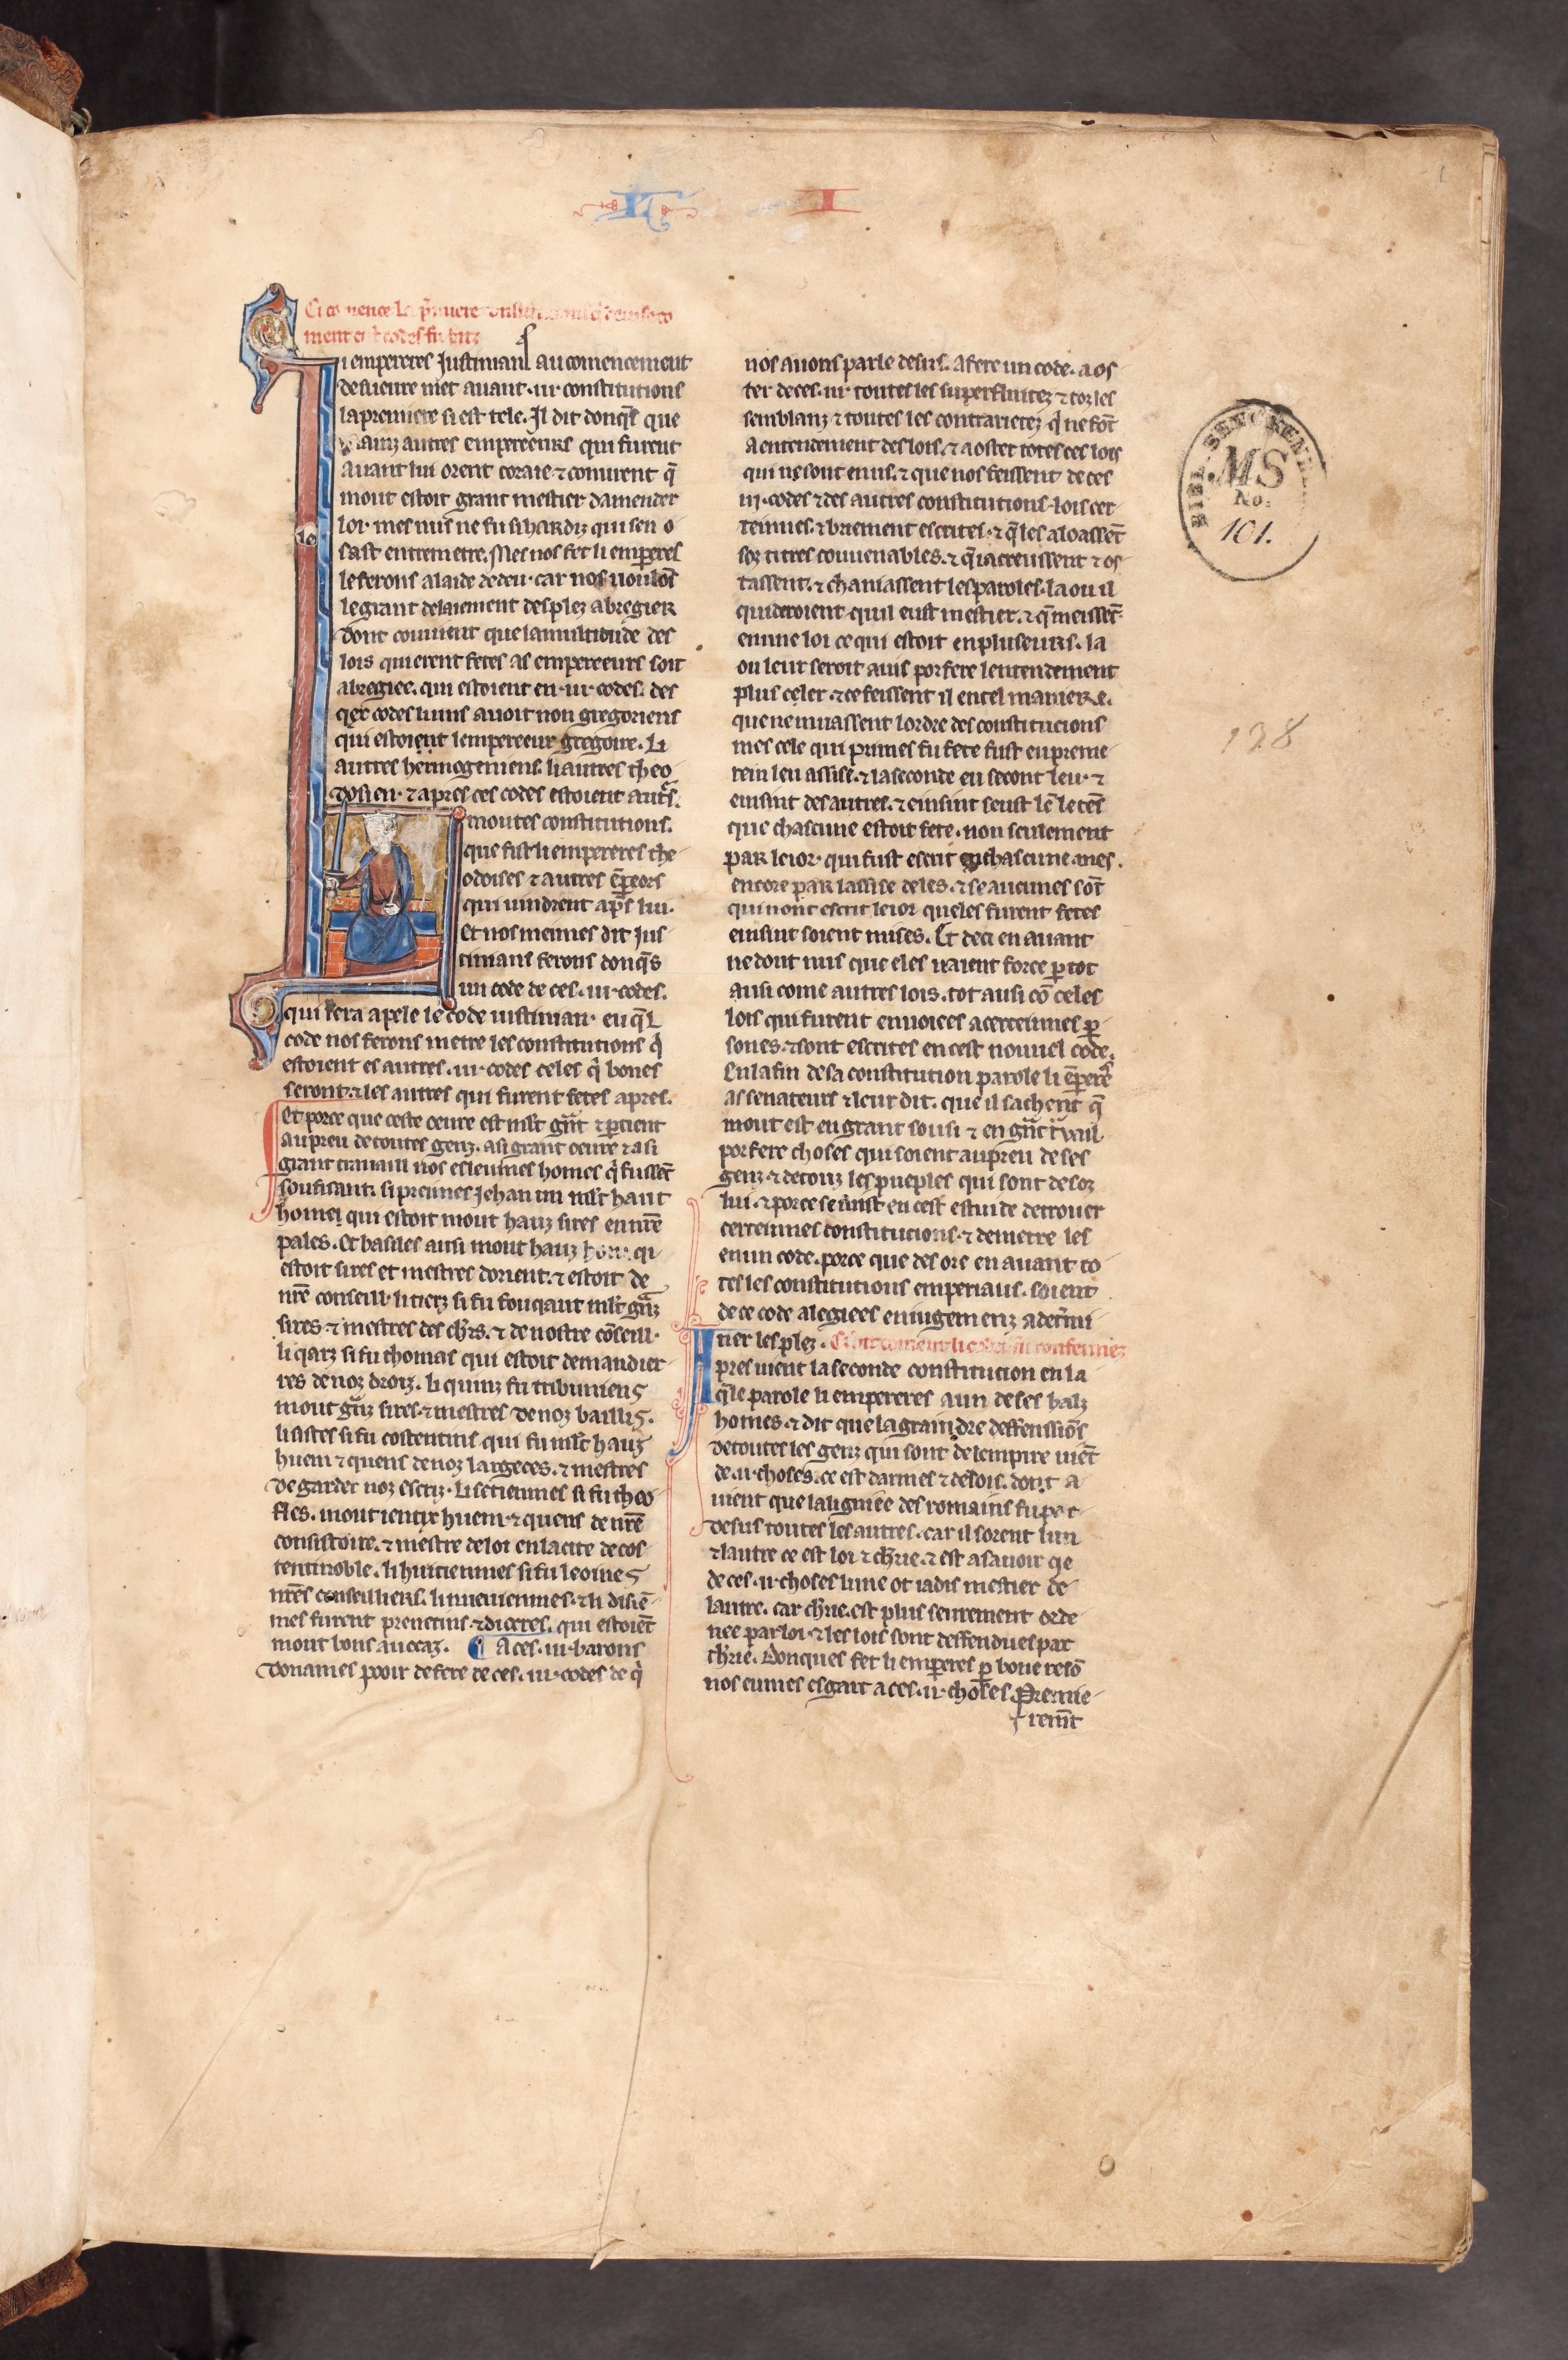 L I
Ci comence la p̃miere
ment cist codes fu
Li empereres Justinianſ au comencement
de s'uevre met avant .iii. constitutions
la premiere si est tele. Il dit donq̃s que
autz autres empereeurs qui furent
avant lui orent coraie ⁊ conurent q̃
mout estoit grant mestier damender
loi. mes nus ne fu si hardiz qui sen o
sast entremetre. Mes nos fet li emperes
le ferons a laide de deu. car nos voulõs
le grant delaiement des plez abregier
dont couvient que la multitude des
lois qui erent fetes as empereeurs soit
abregiee. qui estoient en .iii. codes. des
qex codes li uns avoit non gregoriens
qui estoient lempereeur gregoire. li
autres hermogeniens. li autres theo
dosien. ⁊ apres ces codes estoient autˢ.
moutes constitutions.
que fist li empereres the
odoises ⁊ autres ẽpeeors
qui vindrent aps̃ lui.
Et nos meimes dit jus
tinians ferons donq̃s
un code de ces .iii. codes.
qui sera apele le code iustinian. en q̃l
code nos ferons metre les constitutions q̃
estoient es autres .iii. codes celes q̃ bones
seront. ⁊ les autres qui furent fetes apres.
Et porce que ceste oevre est ml̃t gr̃nt ⁊ p̱tient
au preu de toutes genz. a si grant oevre ⁊ a si
grant travaill nos esleumes homes q̃ fussẽt
soufisant. si preimes Jehan un ml̃t haut
home qui estoit mout hauz sires en nr̃e
pales. Et basiles ausi mout hauz hom. qi
estoit sires et mestres dorient. ⁊ estoit de
nr̃e conseill. li tierz si fu fouqaut ml̃t gr̃nz
sires. ⁊ mestres des chrs̃. ⁊ de nostre cõseill.
li qarz si fu thomas qui estoit demandier
res de noz droiz. li quinz fu tribuniens
mout gr̃nz sires. ⁊ mestres de noz baillis.
li sistes si fu costentins qui fu ml̃t hauz
huem ⁊ quens de noz largeces. ⁊ mestres
de garder noz escriz. li setiennes si fu theo
fles. mout ientix huem. ⁊ quens de nr̃e
consistoire. ⁊ mestre de loi en la cite de cos
tentinoble. li huitiennes si fu leoines
nr̃es conseilliers. li neuiennes. ⁊ li disiẽ
mes furent prenetins. ⁊ diceres. qui estoiẽt
mout bons avocaz. ¶ A ces .iii. barons
donames pooir de fere de ces .iii. codes de q̃
nos avons parle desus. a fere un code. a os
ter de ces .iii. toutes les superfluitez ⁊ toz les
semblanz ⁊ toutes les contrarietez q̃ ne fõt
a entendement des lois. ⁊ a oster totes ces lois
qui ne sont en us. ⁊ que nos feissent de ces
iii. codes ⁊ des autres constitutions. lois cer
teinnes. ⁊ briement escrites. ⁊ q̃ les aloassẽt
soz titres couvenables. ⁊ q̃ i acreussent ⁊ os
tassent. ⁊ chaniassent les paroles. la ou il
quideroient. quil eust mestier. ⁊ q̃ meissẽt
en une loi ce qui estoit en pluseurs. la
ou leur seroit avis por fere lentendement
plus celer. ⁊ ce feissent il en tel maniere.
que ne muassent lordre des constitucions
mes cele qui primes fu fete fust en preme
rein leu assise. ⁊ la seconde en secont leu. ⁊
einsint des autres. ⁊ einsint seust lẽ le tẽs
que chascune estoit fete. non seulement
par leior. qui fust escrit en chascune. mes.
encore par lassise deles. ⁊ se aucunes sõt
qui nont escrit leior queles furent fetes
einsint soient mises. Et deci en avant
ne dout nus que eles naient force p̱ tot
ausi come autres lois. tot ausi cõ celes
lois qui furent envoiees a certeinnes p̱
sones. ⁊ sont escrites en cest nouvel code.
En la fin de sa constitution parole li ẽperẽˢ
as senateurs ⁊ leur dit. que il sachent q̃
mout est en grant sousi ⁊ en gr̃nt tᵃvail.
por fere choses qui soient au preu de ses
genz. ⁊ de touz les pueples qui sont desoz
lui. ⁊ porce se mist en cest estuide de trover
certeinnes constitucions. ⁊ de metre les
en un code. porce que des ore en avant to
tes les constitutions emperiaus. soient
de ce code alegiees en iugemenz a det̃mi
ner les plez. Ci dit coment li codes fu confermez
Apres vient la seconde constitucion en la
q̃le parole li empereres a un de ses halz
homes. ⁊ dit que la graindre deffenssiõs
de toutes les genz qui sont de lempire viẽt
de .ii. choses. ce est darmes ⁊ de lois. dont a
vient que la ligniee des romains fu par
desus toutes les autres. car il sorent lun
⁊ lautre ce est loi ⁊ chr̃ie. ⁊ est asavoir qe
de ces .ii. choses lune ot iadis mestier de
lautre. car chr̃ie. est plus seurement orde
nee par loi. ⁊ les lois sont deffendues par
chr̃ie. Donques fet li emperes p̱ bone resõ
nos eumes esgart a ces .ii. choses. Premie
remẽt
BIBL. SENCKENB.
MS
No.
101.
138
1